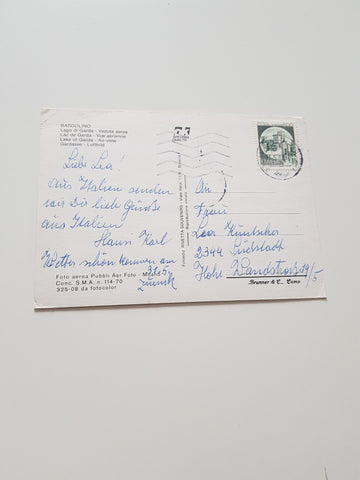 BARDOLINO
Lago di Garda - Veduta aerea
Lac de Garda - Vue aérienne
Lake of Garda - Air view
Gardasee - Luftbild
Liebe Lea!
aus Italien senden
wir dir liebe Grüße
aus Italien
Hansi Karl
Wetter schön kommen am
zurück
Foto aerea Publi Aer Foto -
Conc. S.M.A. n. 114-70
325-08 da fotocolor
An
Frau
Lea
2344 Südstadt
Hohe Wandstraße
Brunner & C., Como